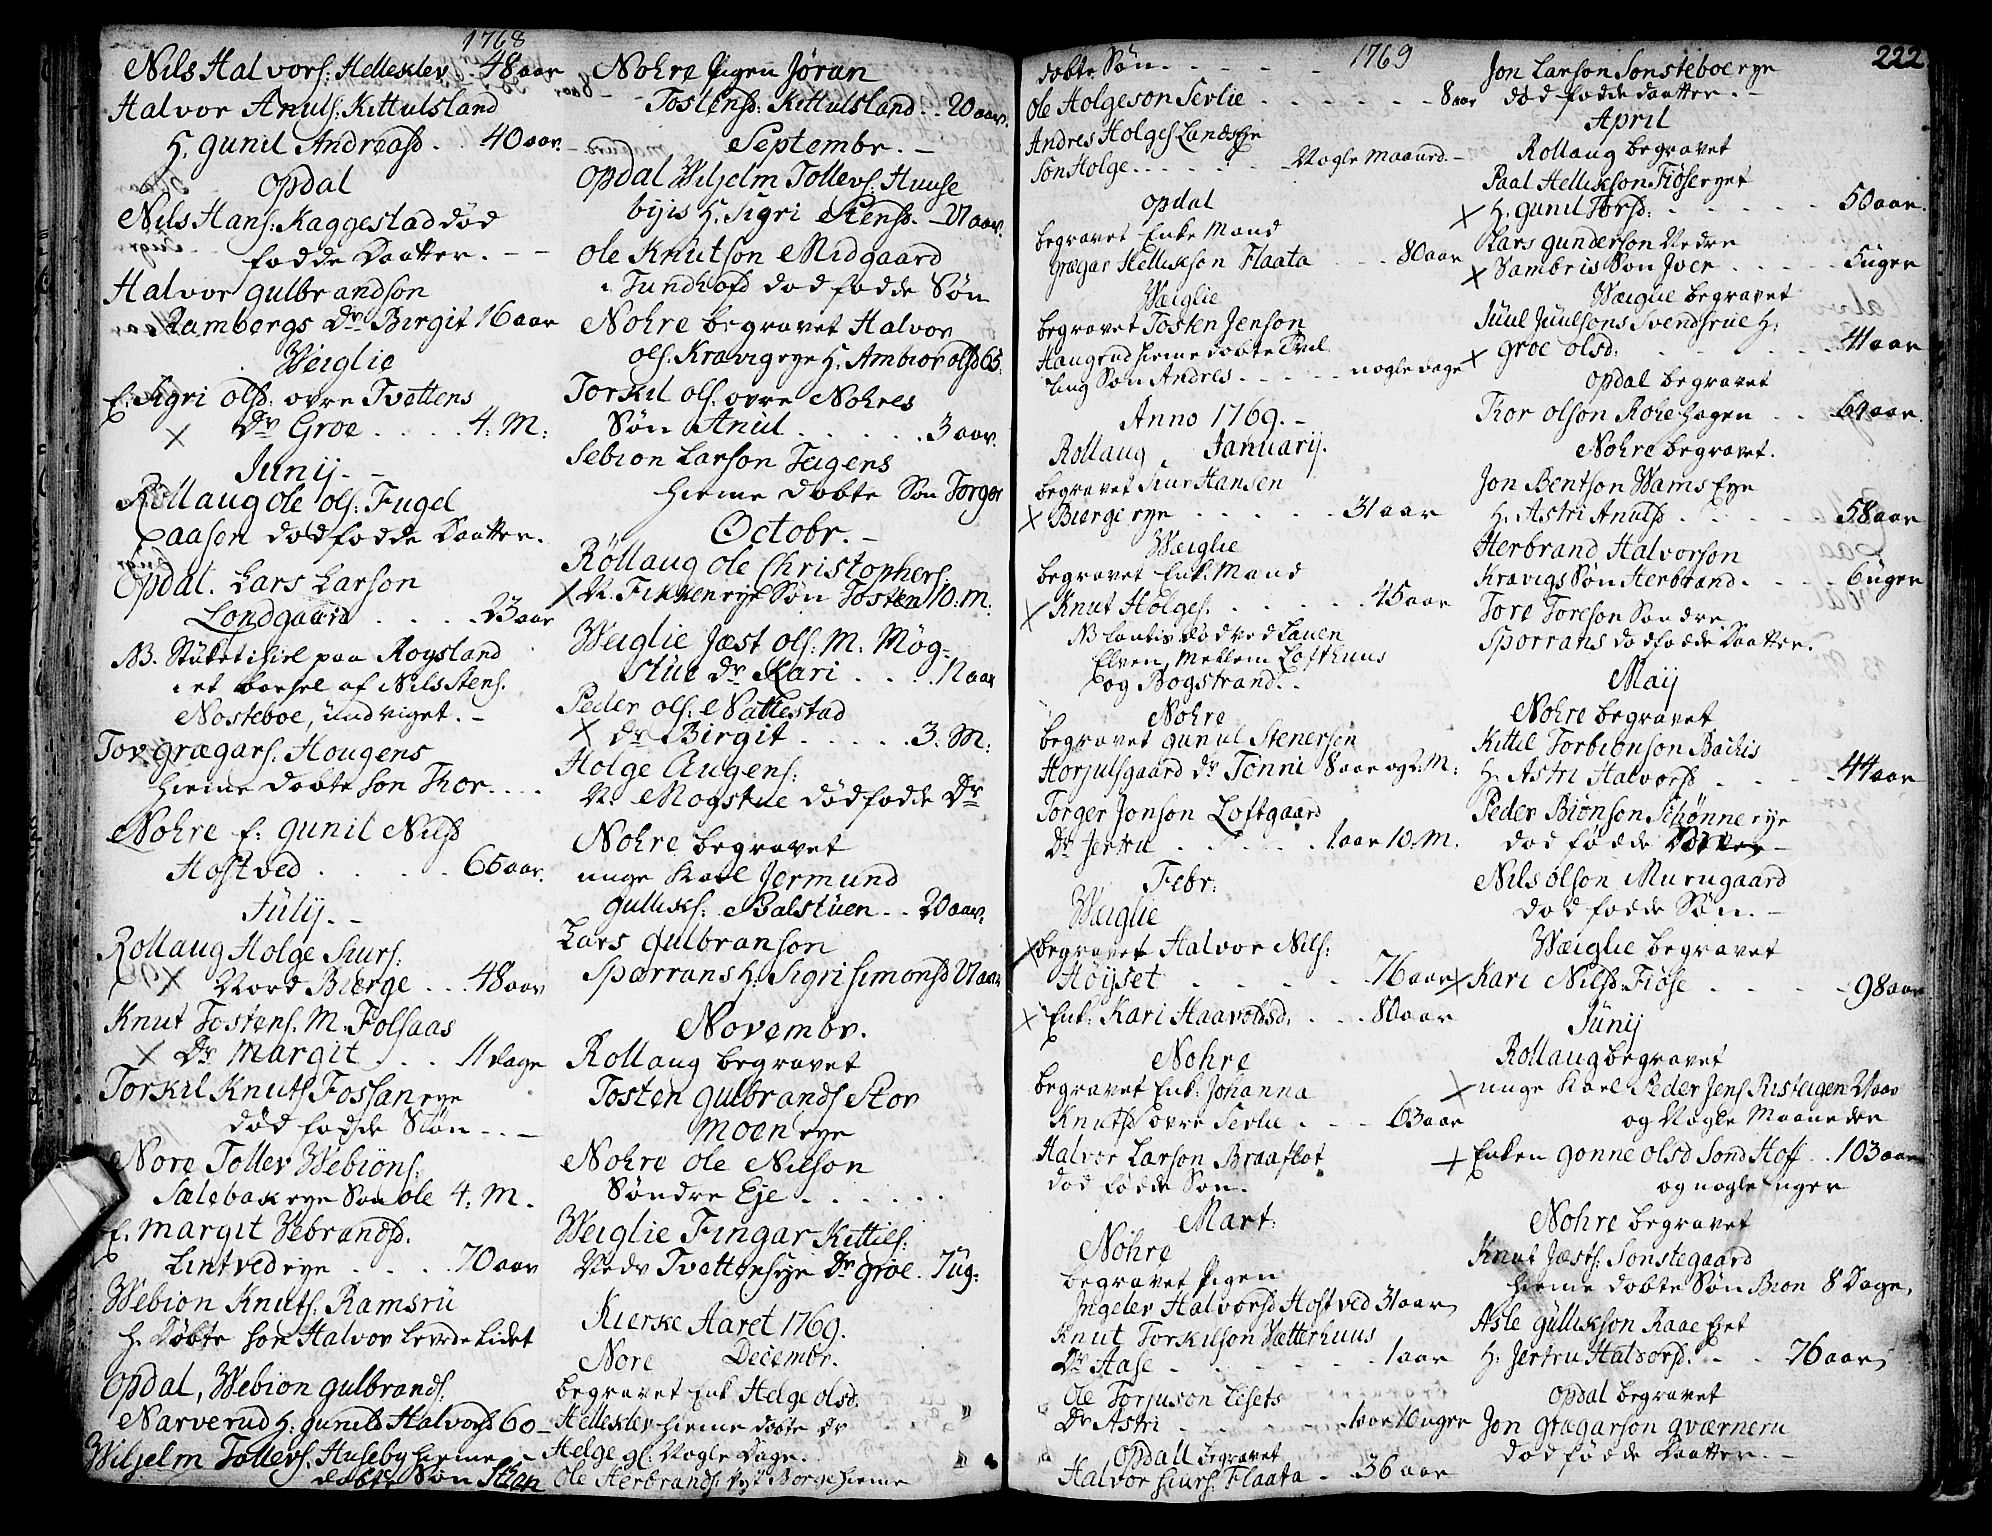 1768
Nils Halvors: Helleslev. 48 aar
Halvor Anuls: Kittulsland
H. gunil Andreasd. . 40 aar. -
Opdal
Nils Hans: Kaggestad död
fodde Daatter. - -
Halvor gulbrandson
Rambergs Dr. Birgit 16 aar
Weiglie
E: Sigri olsd: ovre Tvettens
x Dr Groe . . . . 4: M:
Junij. -
Rollaug ole ols: Fugel
Haasen dod fodde Daatter.
Opdal. Lars Larson
Londgaard . . . . . 23 aar
NB. Stüket ihiel paa Roysland
i et barsel af Nils Stens.
Nosteboe, undviget. -
Tov grægars. Hougens
hieme dobte Son Thor. . . .
Nohre E: gunil Nilsd
Hoftved . . . . . 65 aar.
Jülij. -
Rollaug Holge Siurs:
x Nord Bierge . . . 48 aar
Knut Tostens. M. Folsaas
x Dr Margit . . . 11 dage
Torkil Knuts Fossan eye
död fodde Sön - . -
Nore Tollev Webiöns:
Sælebak eye Son ole 4. M.
E. Margit Webrandsd.
Lintved eye . . . . 70 aar
Webion Knuts: Ramsrü
H. Döbte Son Halvor levde lidet
Opdal, Webion gulbrands.
Narverud H: gunild Halvorsd 60 -
Wiljelm Tollevs. Huseby hieme
dobte Son Sthen
Nohre Pigen Jöran
Tostensd: Kittulsland . . 20 aar.
Septembr. -
Opdal Wiljelm Tollevs: Huuse
byis H. Sigri Stensd. - 21 aar.
Ole Knutson Midgaard
i Tundhofd dod fodde Sön
Nohre begravet Halvor
ols. Kravig eye H. Ambior olsd 65.
Torkil ols. ovre Nohres
Søn Anul . . . . . . 3 aar.
Sebion Larson Teigens
hieme dobte Son Torger
Octobr. -
Röllaug Ole Christophers.
x N. Fikken eye Søn Tosten 10. M:
Weiglie Jæst ols: M: Mög=
stue Dr Kari . . . . 12 aar
Peder ols. Nattestad
x Dr Birgit . . . . . 3. M:
Holge Augens:
N. Mogstue död fodde Dr
Nohre begravet
unge Karl Jermund
gulliks: Balstüen . . 20 aar.
Lars gulbranson
Sporrans H: Sigri Simonsd 21 aar
Novembr.
Rollaug begravet
Tosten gulbrands Stor
moen eye
Nohre Ole Nilson
Söndre Eje . . . . . . .
Weiglie Fingar Kittils:
Nedr Tvetten eye Dr groe. 7 ug:
Kierke Aaret 1769.
Nore Decembr.
begravet Enk Helge olsd.
Helleslev hieme dobte Dr
Helge gl. Nogle Dage.
Ole Herbrands: Byt Borge hieme
1769
222
dobte Søn. . . . . . .
Ole Holgeson Serlie . . . . . . 8 aar
Andres Holges Landseye
Son Holge . . . . . . . Nogle maaned. -
Opdal
begravet Enke Mand
Grægar Hellikson Flaata . . . 80 aar
Wæiglie
begravet Tosten Jenson
Haugrud hieme dobte Tvil
ling Son Andres . . . . . nogle dage
Anno 1769. -
Rollaug Januarij.
begravet Siur Hansen
x Bierge eye . . . . . . 31 aar
Wæiglie
begravet Enke Mand
x Knut Holges. . . . . . . 45 aar
NB fantis død ved Lauen
Elven, Mellem Lofthuus
og Bogstrand. .
Nohre
begravet gunul Stenerson
Horjulsgaard Dr Tonni 8 aar og 2. M:
Torger Jonson Loftgaard
Dr Jertru . . . . . 1 aar 10. M.
Febr:
Wæiglie
x begravet Halvor Nils:
Höiset . . . . . . 76 aar
x Enk: Kari Haavoldsd. . . . 80 aar
Nohre
begravet Enk: Johanna
Knutsd ovre Serlie . . . . 63 aar
Halvor Larson Braaflot
dod födde Son.
Mart:
Nohre
begravet Pigen
Ingelev Halvorsd Hoftved 31 aar
Knut Torkilson Vætterhuus
Dr Aase . . . . . . . 1 aar
Ole Torjuson Lesets
Dr Astri . . . . . . . 1 aar 10 uger
Opdall begravet
Halvor Siurs. Flaata . 36 aar
Jon Larson Sonsteboe eye
død fodde Daatter. -
April
Rollaug begravet
Paal Hellikson Fiøse eyet
x H. gunil Torsd: . . . . . 50 aar.
Lars Gunderson Nedre
x Vambris Son Iver . . . . 5 uger
Wæiglie begravet
Jüul Juulsons Svendsrue H:
x groe olsd: . . . . . . 41 aar
Opdal begravet
Thor olson Rohe hagen . . 69 aar.
Nohre begravet.
Jon Bentson Wams Eye
H. Astri Anulsd . . . . . . 58 aar
Herbrand Halvorson
Kravigs Søn Herbrand . . . . 6 uger
Tore Toreson Søndre
Sporrans död födde Daatter.
Maij
Nohre begravet
Kittil Torbionson Bachis
H. Astri Halvorsd . . . . 44 aar
Peder Biönson Schønne eye
dod fødde
Nils olson Murugaard
dod fodde Søn. -
Wæiglie begravet
x Kari Nilsd Fiöse . . . . . 98 aar
Jünij
Rollaug begravet
x unge Karl Peder Jens Risteigen 21 aar
og Nogle Maaneder
x Enken gonne olsd Sond Hoff . . 103 aar
og nogle uger
Nohre begravet
Knut Jæsts: Sonstegaard
hieme dobte Søn Bion 8 Dage.
Asle gülliksøn Raae Eyet
H. Jertru Halvorsd. . . . 76 aar
Opdal begravet
Jon Grægarson Qværneru
dod födde Daatter. - -